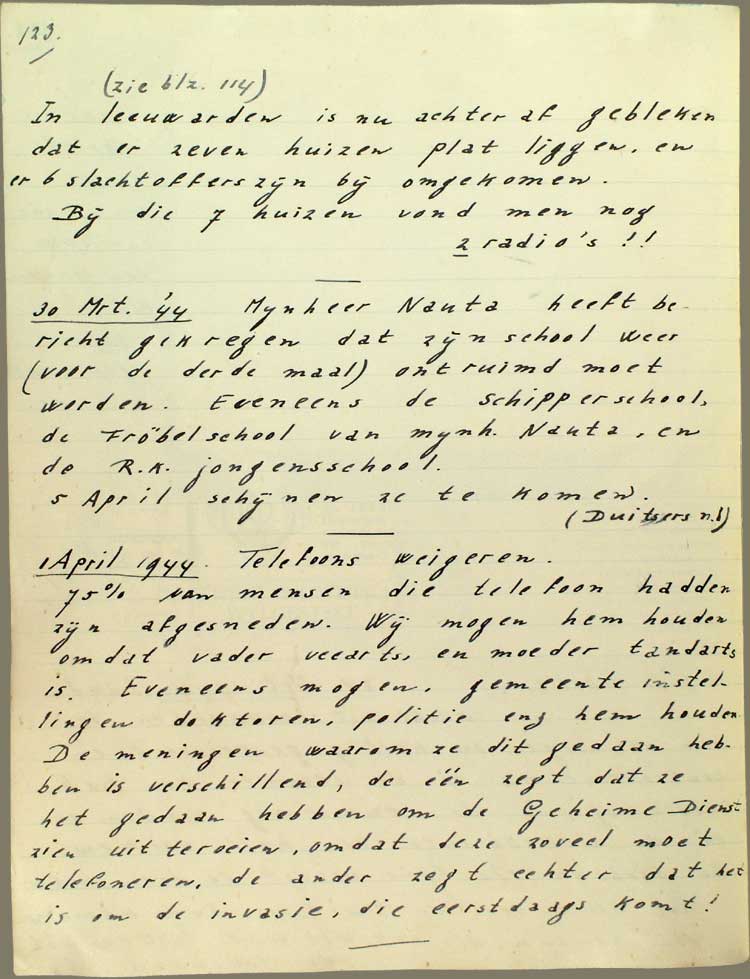 123.
(zie blz. 114)
In leeuwarden is nu achter af gebleken
dat er zeven huizen plat liggen, en
er 6 slachtoffers zijn bij omgekomen.
Bij die 7 huizen vond men nog
2 radio's !!
30 Mrt. '44 Mynheer Nauta heeft be-
richt gekregen dat zijn school weer
(voor de derde maal) ontruimd moet
worden. Eveneens de schipperschool,
de Fröbelschool van mynh. Nauta, en
de R.K. jongensschool.
5 April schijnen ze te komen.
(Duitsers n.l)
1 April 1944. Telefoons weigeren.
75% van mensen die telefoon hadden
zijn afgesneden. Wij mogen hem houden
omdat vader veearts, en moeder tandarts
is. Eveneens mogen, gemeente instel-
lingen doktoren, politie enz hem houden
De meningen waarom ze dit gedaan heb-
ben is verschillend, de één zegt dat ze
het gedaan hebben om de Geheime Dienst
uit teroeien, omdat deze zoveel moet
telefoneren, de ander zegt echter dat het
is om de invasie, die eerstdaags komt!